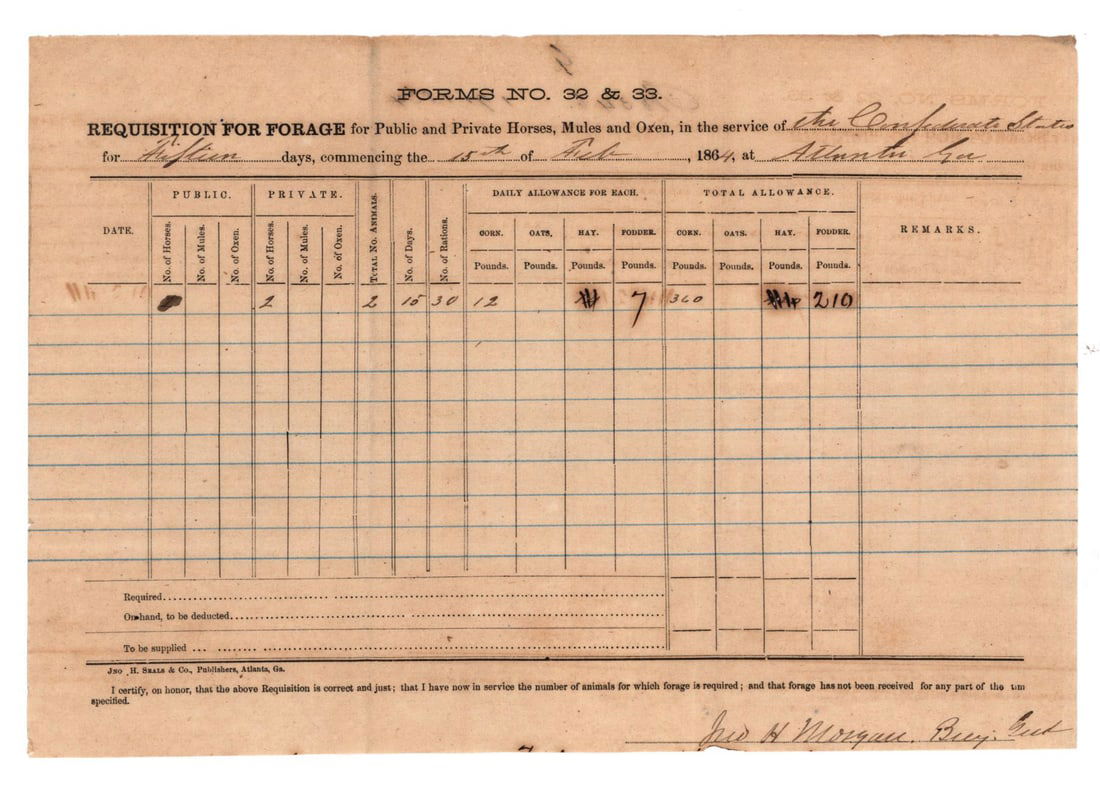 FORMS NO. 32 & 33.
REQUISITION FOR FORAGE for Public and Private Horses, Mules and Oxen, in the service of the Confederate States
for Fifteen days, commencing the 15th of Feb , 1864, at Atlanta Ga
DATE.
PUBLIC.
No. of Horses.
No. of Mules.
No. of Oxen.
PRIVATE.
No. of Horses.
No. of Mules.
No. of Oxen.
TOTAL NO. ANIMALS.
No. of Days.
No. of Rations.
DAILY ALLOWANCE FOR EACH.
CORN. OATS. HAY. FODDER.
Pounds. Pounds. Pounds. Pounds.
TOTAL ALLOWANCE.
CORN. OATS. HAY. FODDER.
Pounds. Pounds. Pounds. Pounds.
REMARKS.
2 2 15 30 12 7 360 210
Required
On hand, to be deducted
To be supplied
JNO H. SEALS & CO., Publishers, Atlanta, Ga.
I certify, on honor, that the above Requisition is correct and just; that I have now in service the number of animals for which forage is required; and that forage has not been received for any part of the tim
specified.
Jno H Morgan. Brig. Genl